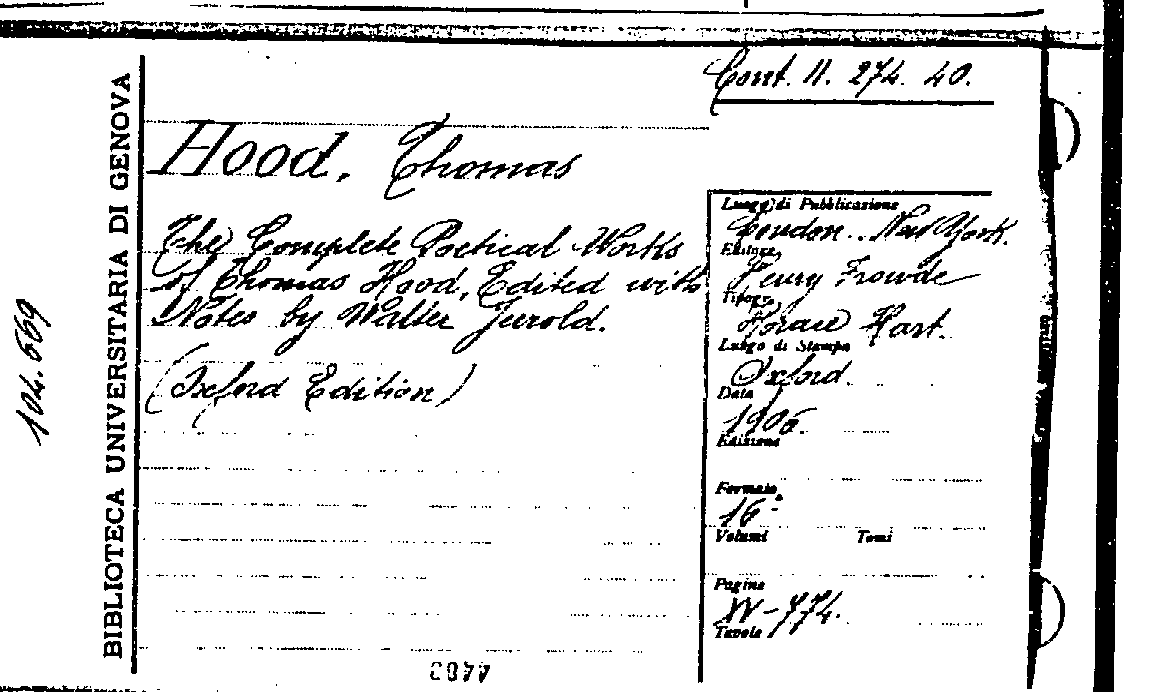 Cont. II. 274. 40.
BIBLIOTECA UNIVERSITARIA DI GENOVA
104.669
Hood, Thomas
The Complete Poetical Works
of Thomas Hood, Edited with
Notes by Walter Jerrold.
(Oxford Edition)
Luogo di Pubblicazione
London.. New York.
Editore
Henry Frowde
Tipogr.
Horace Hart.
Luogo di Stampa
Oxford.
Data
1906.
Edizione
Formato
16°
Volumi Tomi
Pagine
XV-774.
Tavole